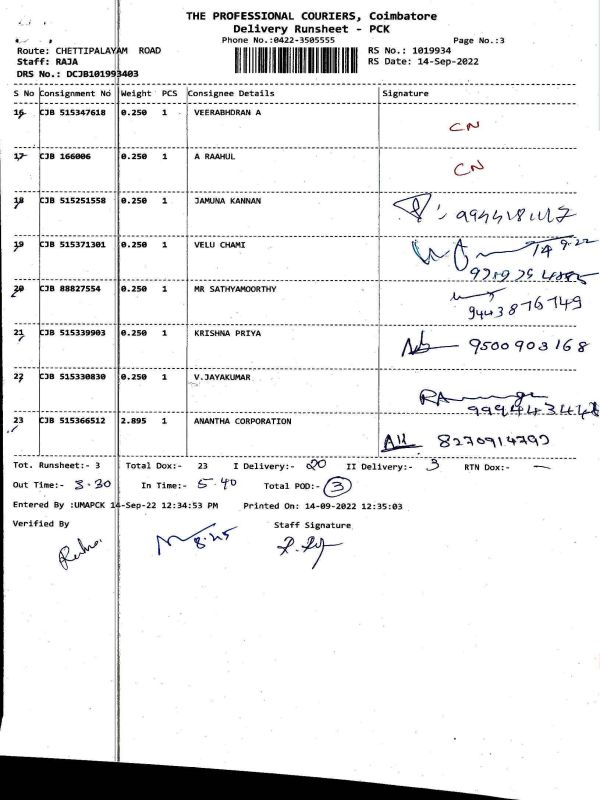 THE PROFESSIONAL COURIERS, Coimbatore
Delivery Runsheet - PCK
Phone No.:0422-3505555 Page No.:3
Route: CHETTIPALAYAM ROAD RS No.: 1019934
Staff: RAJA RS Date: 14-Sep-2022
DRS No.: DCJB101993403
S No Consignment No Weight PCS Consignee Details Signature
16 CJB 515347618 0.250 1 VEERABHDRAN A CN
17 CJB 166006 0.250 1 A RAAHUL CN
18 CJB 515251558 0.250 1 JAMUNA KANNAN
19 CJB 515371301 0.250 1 VELU CHAMI 14 9.22
20 CJB 88827554 0.250 1 MR SATHYAMOORTHY
9443876749
21 CJB 515339903 0.250 1 KRISHNA PRIYA 9500903168
22 CJB 515330830 0.250 1 V.JAYAKUMAR
23 CJB 515366512 2.895 1 ANANTHA CORPORATION
8270914792
Tot. Runsheet:- 3 Total Dox:- 23 I Delivery:- 20 II Delivery:- 3 RTN Dox:- —
Out Time:- 3.30 In Time:- 5.40 Total POD:- 3
Entered By :UMAPCK 14-Sep-22 12:34:53 PM Printed On: 14-09-2022 12:35:03
Verified By Staff Signature
8.45